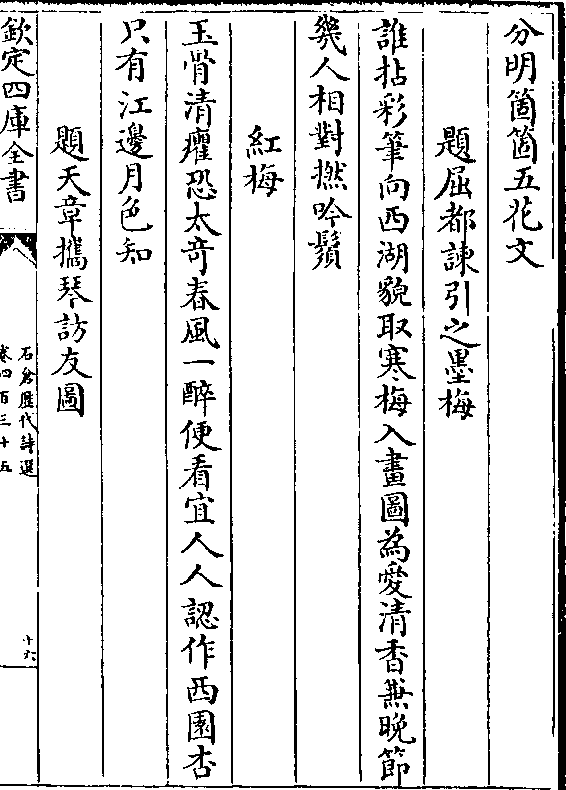 分明箇箇五花文
題屈都諫引之墨梅
誰拈彩筆向西湖貌取寒梅入畫圖為愛清香無晚節
幾人相對撚吟鬚
紅梅
玉骨清癯恐太奇春風一醉便看宜人人認作西園杏
只有江邊月色知
題天章攜琴訪友圖
欽定四庫全書
石倉歷代詩選
卷四百三十五
十六